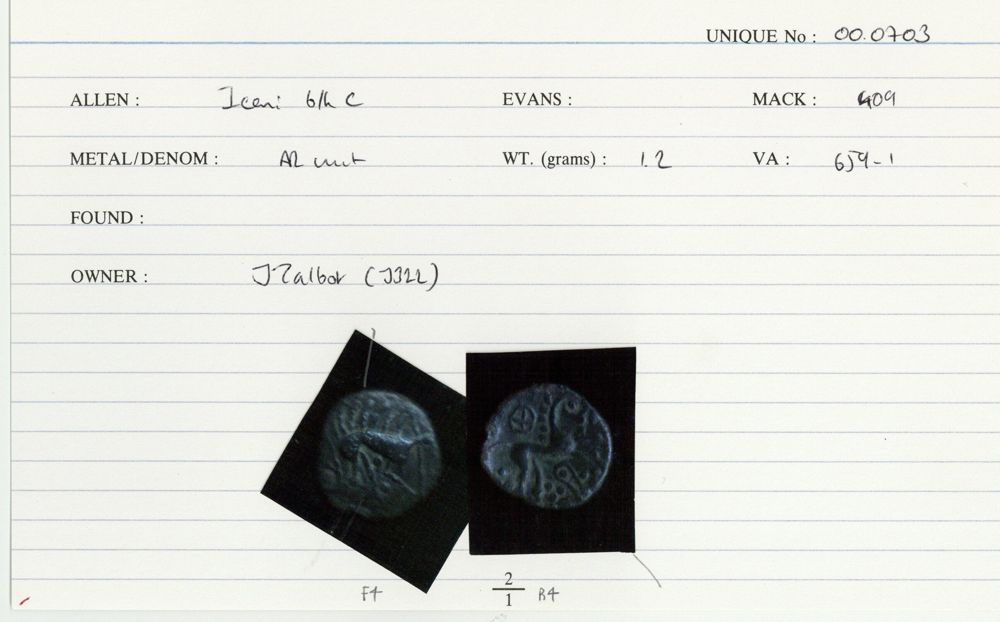 UNIQUE No : 00.0703
ALLEN : Iceni b/h C EVANS : MACK : 409
METAL/DENOM : AR unit WT. (grams) : 1.2 VA : 659-1
FOUND :
OWNER : J Talbot (J322)
F4 2/1 R4